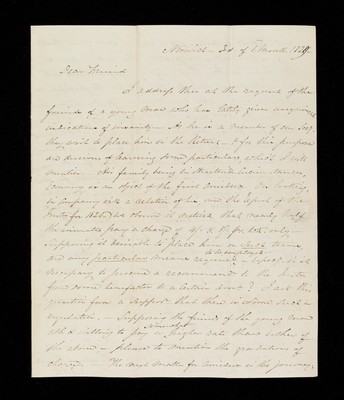 Norwich - 3rd of 1 Month 1829.
Dear Friend
I address thee at the request of the
friend of a young man who has lately given unequivocal
indications of insanity - As he is a member of our Socy
they wish to place him in the Retreat - & for this purpose
are desirous of learning some particulars, which I will
mention. His family being in
is an object of the first
in company with a relation of his, over the report of the
Instn for 1828, we observe it noticed that nearly half
the inmates pay a charge of 4/. & 8/. pr week only -
Supposing it desirable to place him on such terms,
are any particular means required to be complied with - is it
necessary to procure a recommend. to the Instn
from some benefactor to a certain amt? I ask this
question from a supposn that there is some such a
regulation. - Supposing the friend of the young man
be willing to pay a somewhat higher rate than either of
the above - please to mention the gradations of
charge. - The next matter for consideron is the journey,